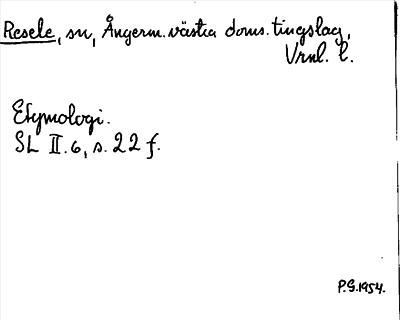 Resele, sn, Ångerm. västra doms. tingslag,
Vrnl. l.
Etymologi.
SL II. 6, s. 22 f.
P.G. 1954.